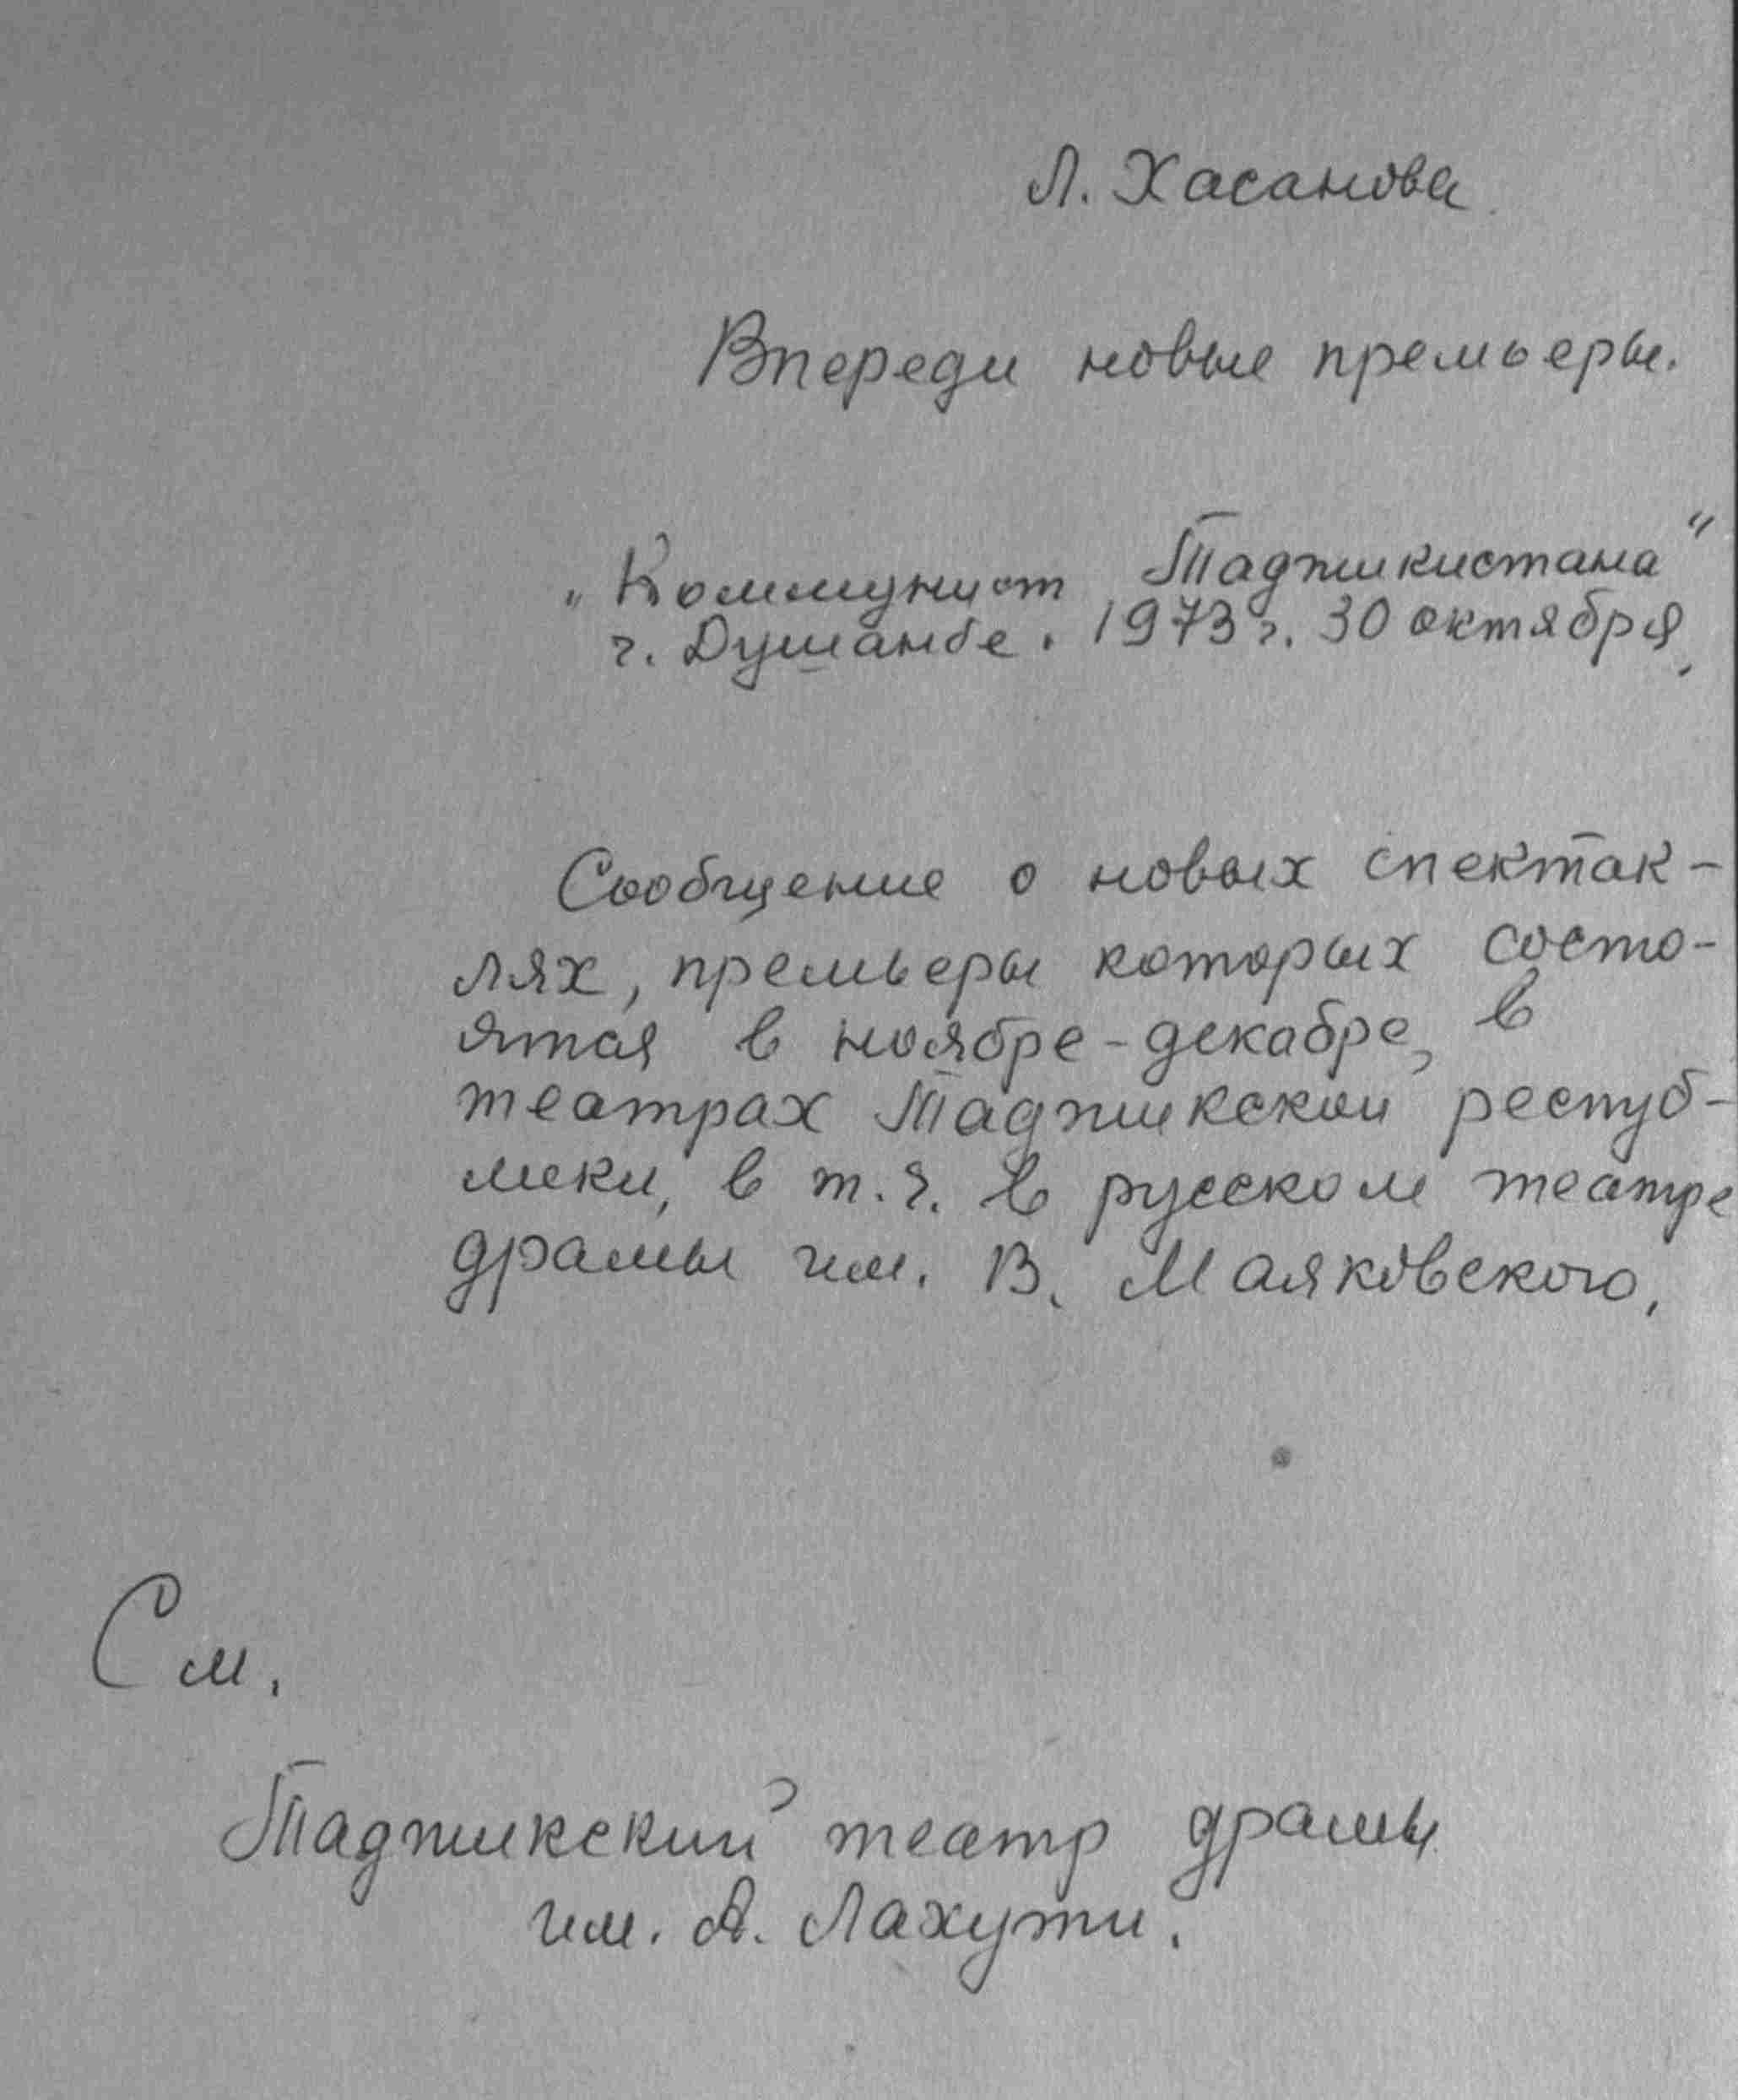 Л. Хасанова
Впереди новые премьеры.
„Коммунист Таджикистана"
г. Душанбе. 1973 г. 30 октября.
Сообщение о новых спектак-
лях, премьеры которых состо-
ятся в ноябре-декабре, в
театрах Таджикской респуб-
лики, в т.ч. в русском театре
драмы им. В. Маяковского,
См.
Таджикский театр драмы
им. А. Лахути.